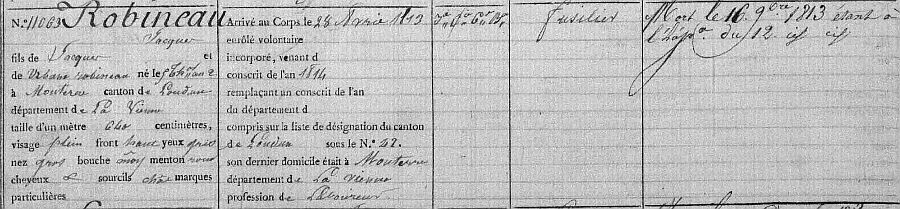 N.° 11063 Robineau
Jacques
fils de Jacques et
de Urbane robineau né le
à Monterre canton de Loudun
département de La Vienne
taille d'un mètre 640 centimètres,
visage plein front haut yeux gris
nez gros bouche moy menton rond
cheveux & sourcils chat marques
particulières
Arrivé au Corps le 28 Avril 1813
enrôlé volontaire
incorporé, venant d
conscrit de l'an 1814
remplaçant un conscrit de l'an
du département d
compris sur la liste de désignation du canton
de Loudun sous le N.° 42.
son dernier domicile était à Monterre
département de La Vienne
profession de Laboureur
fusilier
Mort le 16 9bre 1813 étant à
l'hôpal du 12 id id